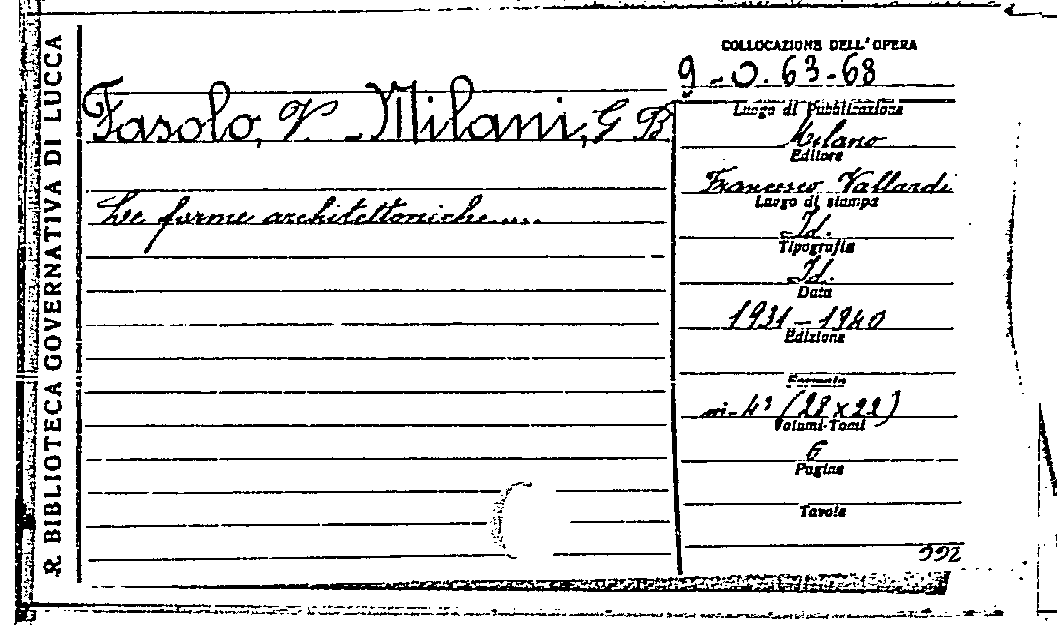 R. BIBLIOTECA GOVERNATIVA DI LUCCA
Fasolo, V - Milani, G B
Le forme architettoniche.....
COLLOCAZIONE DELL' OPERA
9-0.63-68
Luogo di Pubblicazione
Milano
Editore
Francesco Vallardi
Luogo di stampa
Id.
Tipografia
Id.
Data
1931-1940
Edizione
Formato
in-4° (28x22)
Volumi-Tomi
6
Pagine
Tavole